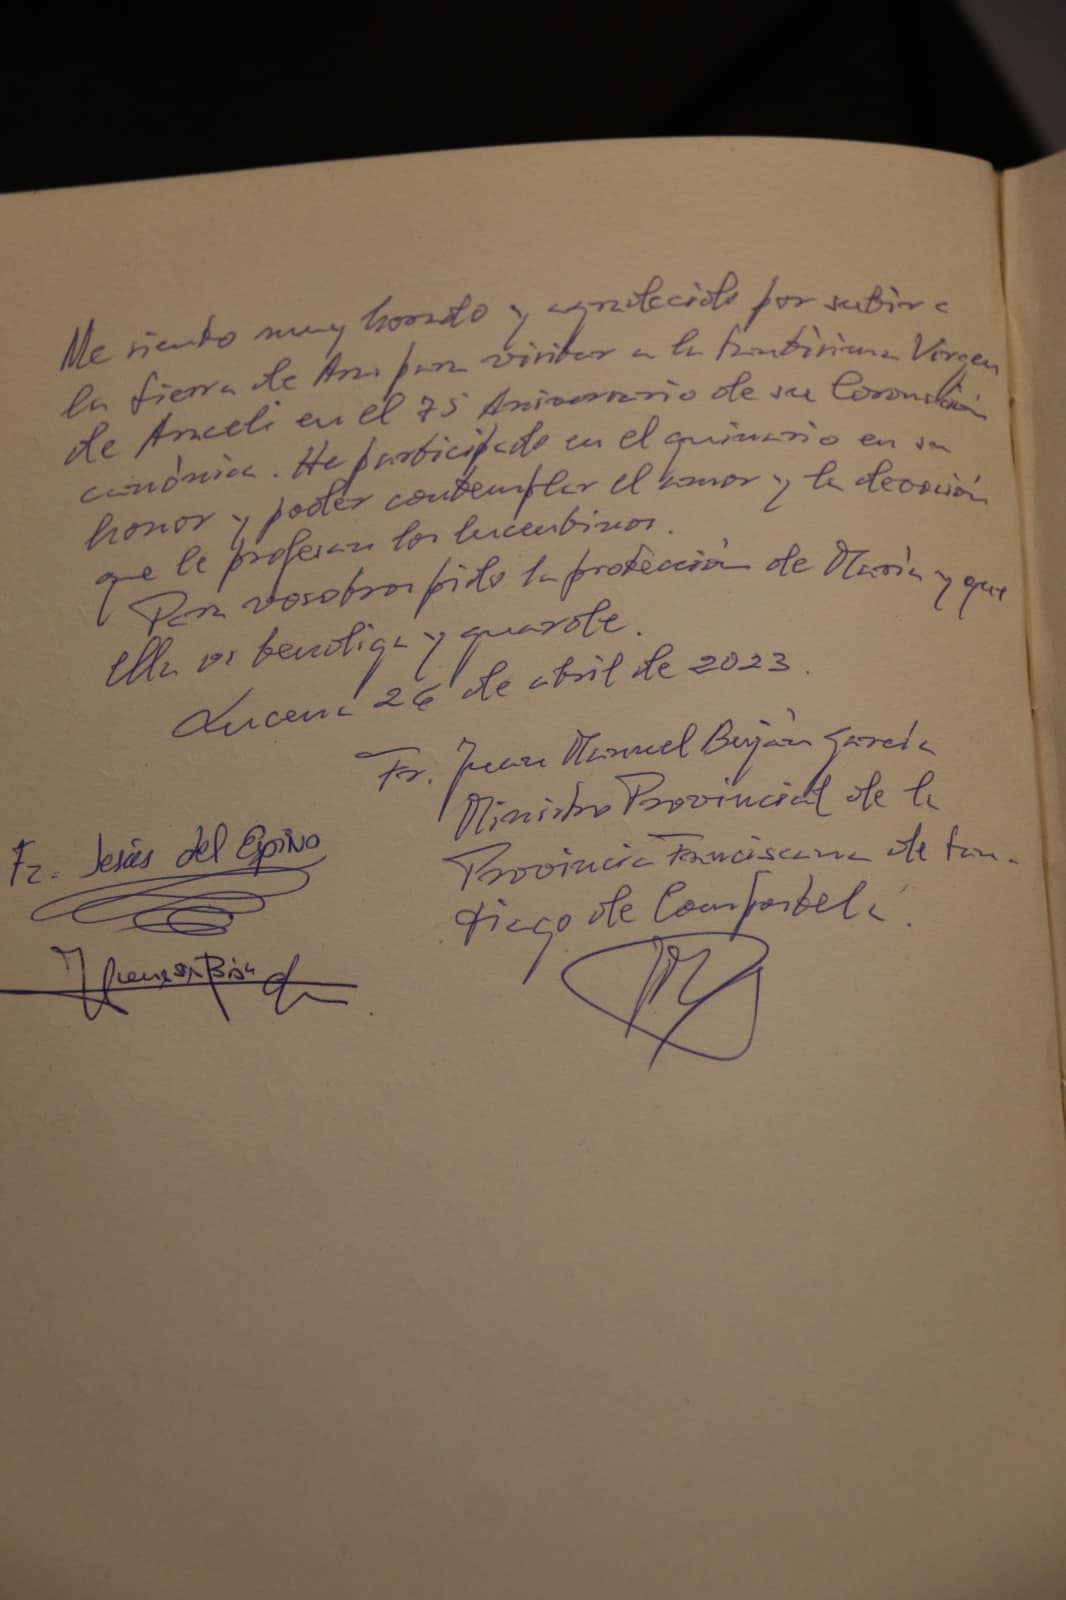 Me siento muy honrado y agradecido por subir a
la Sierra de Aras para visitar a la Santísima Virgen
de Araceli en el 75 Aniversario de su Coronación
canónica. He participado en el quinario en su
honor y poder contemplar el amor y la devoción
que le profesan los lucentinos.
Para vosotros pido la protección de María y que
Ella os bendiga y guarde.
Lucena 26 de abril de 2023.
Fr. Juan Manuel Buján García
Ministro Provincial de la
Provincia Franciscana de San-
tiago de Compostela.
Fr. Jesús del Espino